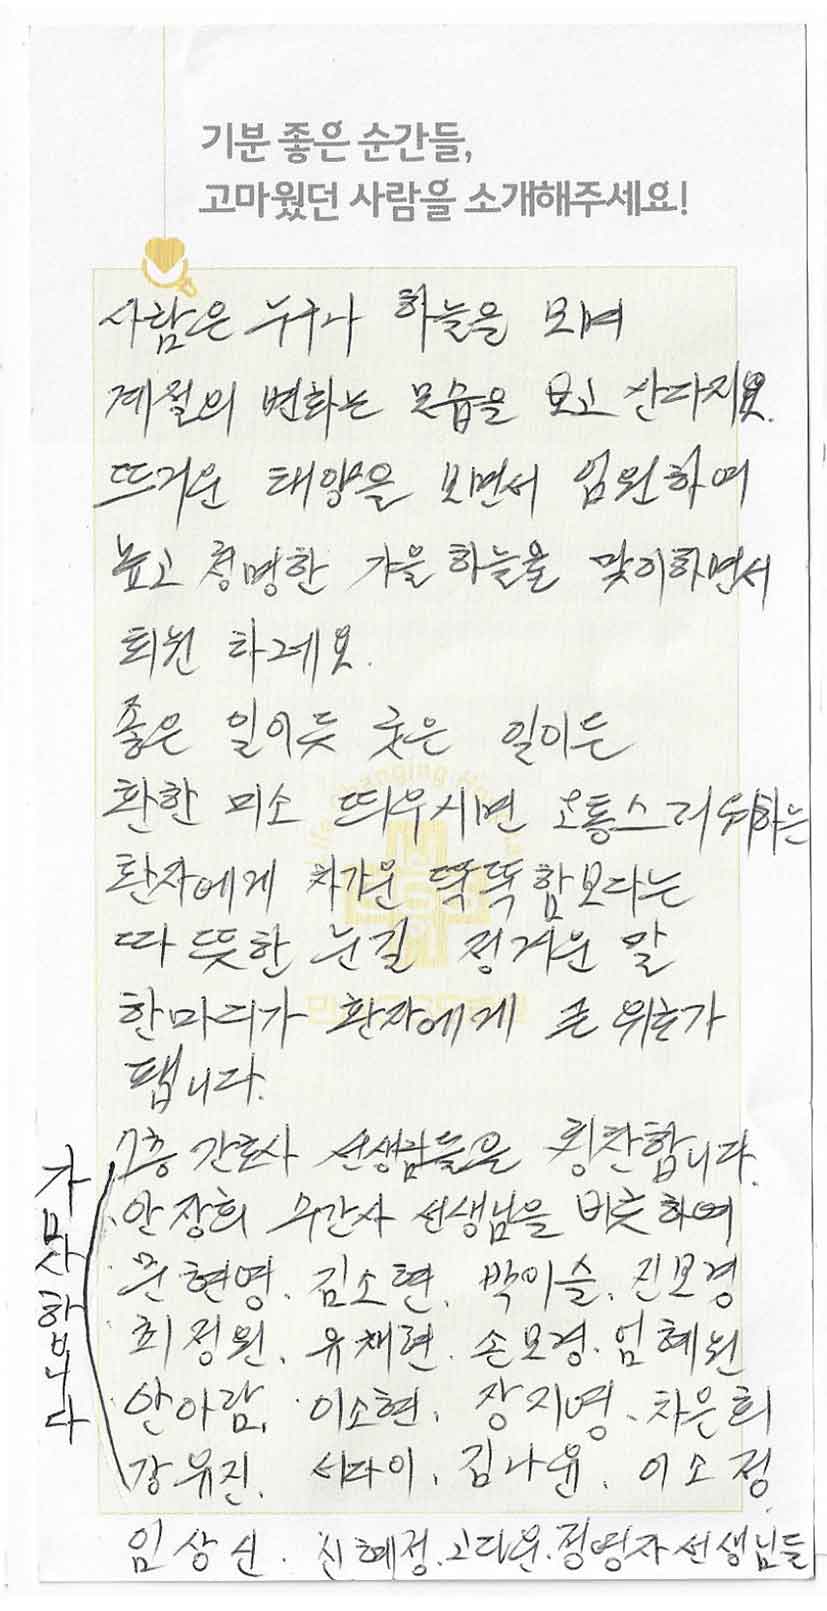 기분 좋은 순간들,
고마웠던 사람을 소개해주세요!
사람은 누구나 하늘을 보며
계절의 변화는 모습을 보고 산다지요.
뜨거운 태양을 보면서 입원하여
높고 청명한 가을 하늘을 맞이하면서
퇴원 하네요.
좋은 일이듯 궂은 일이든
환한 미소 띄우시면 고통스러워하는
환자에게 차가운 똑똑함보다는
따뜻한 눈길 정겨운 말
한마디가 환자에게 큰 위로가
됩니다.
7층 간호사 선생님들을 칭찬합니다.
안장희 수간사 선생님을 비롯하여
현명. 김소현. 박이슬. 진보경
최정원. 유채현. 손모경. 엄혜원
안아람. 이소현. 장지영. 차은희
강유진. 서다이. 김나윤. 이소정
임상신. 신혜정. 고다운. 정영자 선생님들
감사합니다